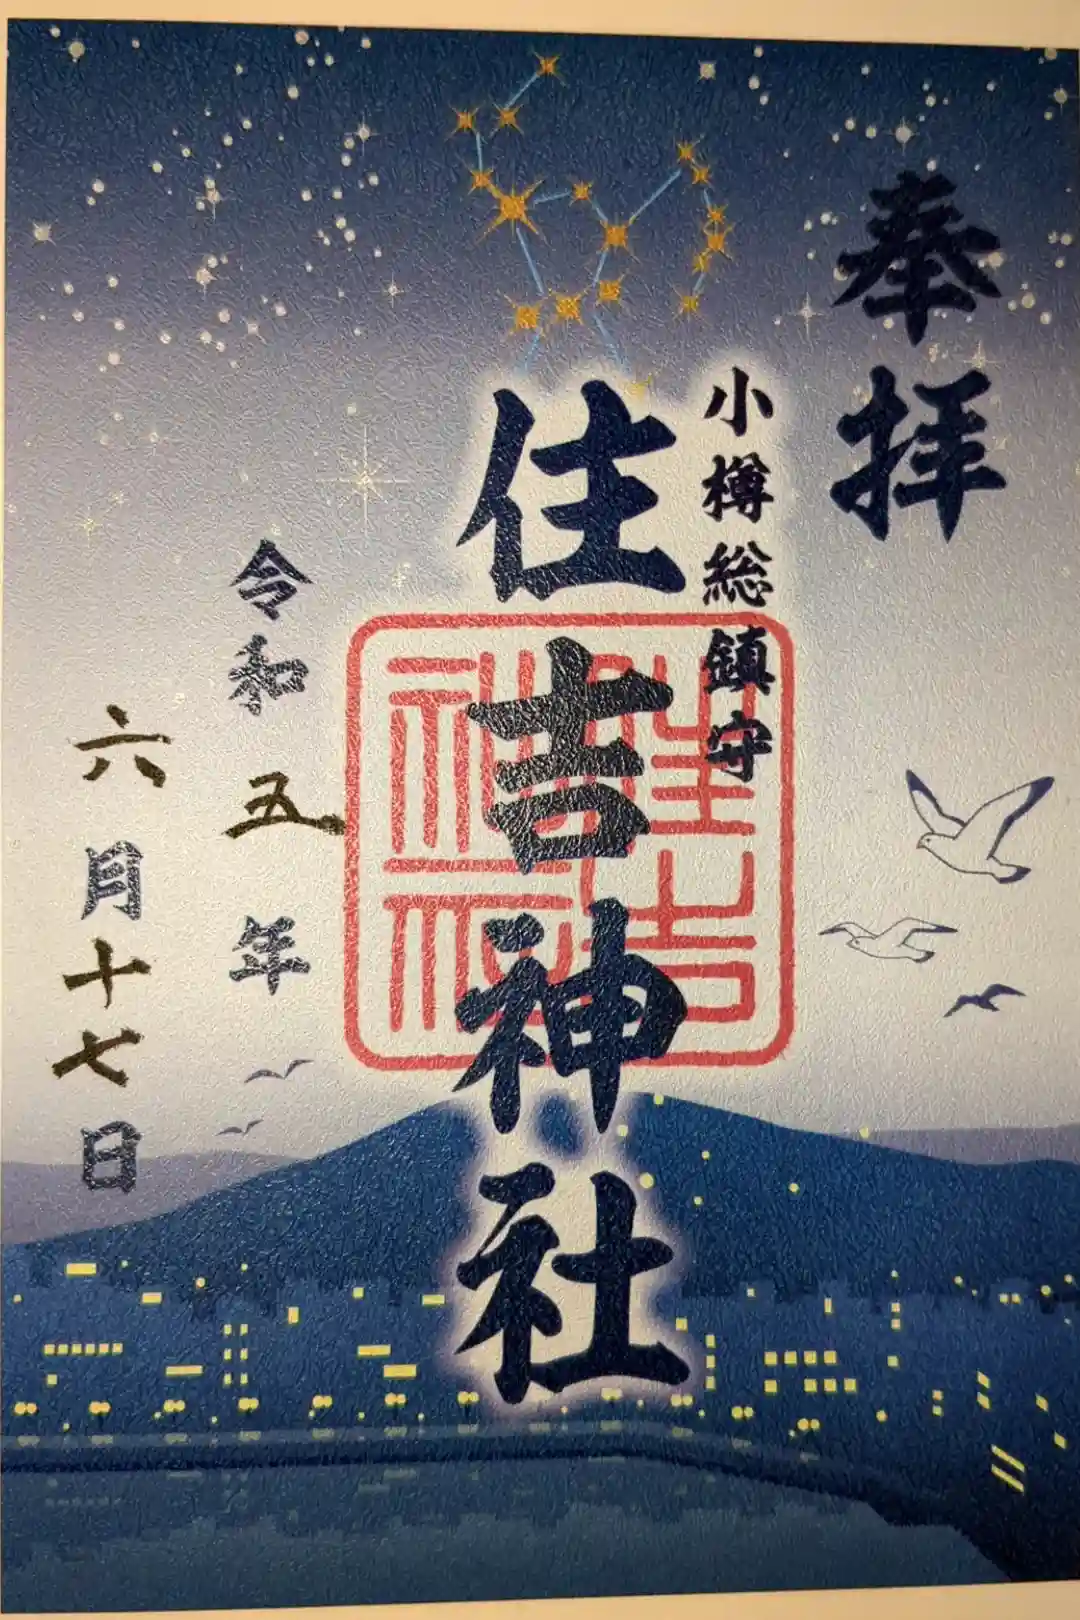 奉拝
小樽総鎮守
住吉神社
住吉
神社
令和五年
六月十七日